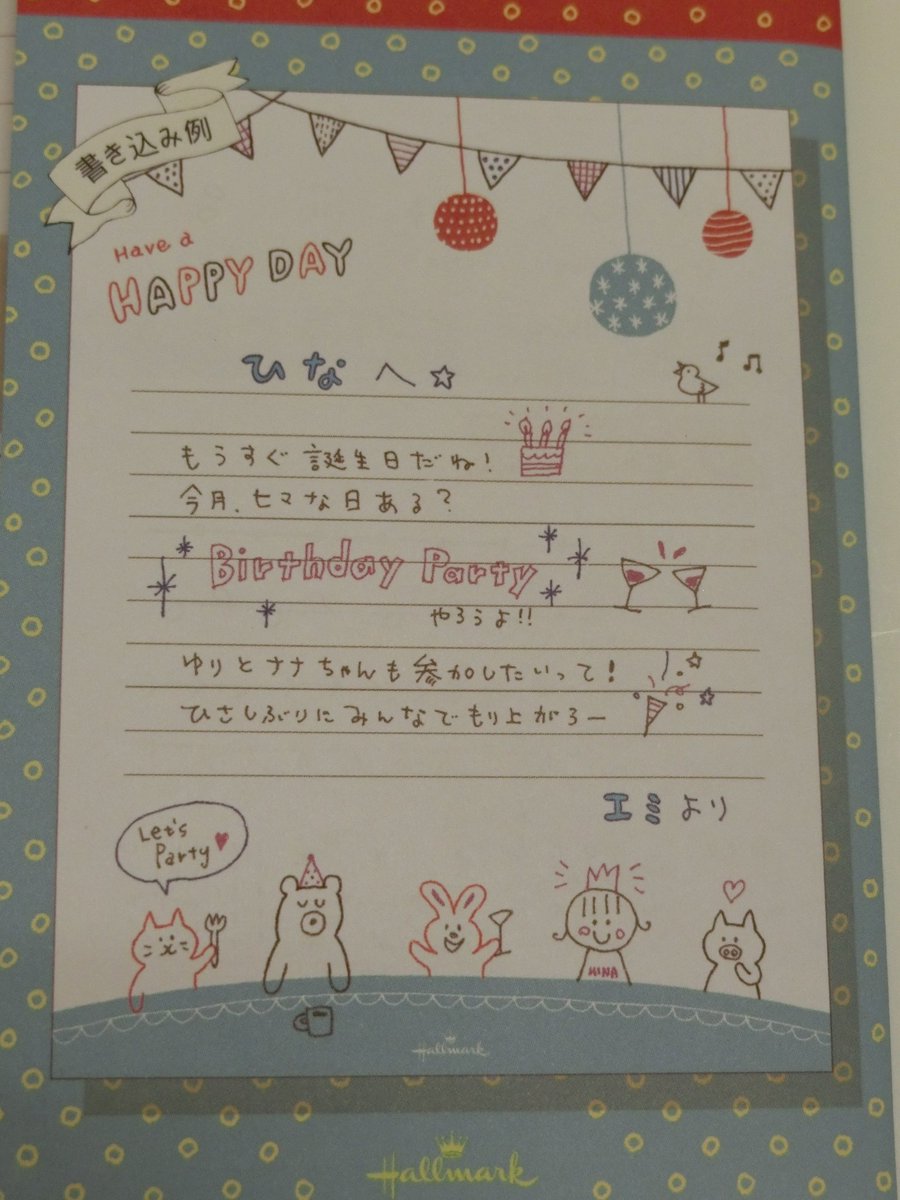 書き込み例
Have a
HAPPY DAY
ひなへ☆
もうすぐ誕生日だね！
今月、ヒマな日ある？
Birthday Party
やろうよ!!
ゆりとナナちゃんも参加したいって！
ひさしぶりにみんなでもり上がろー
エミより
Let's
Party
HINA
Hallmark
Hallmark